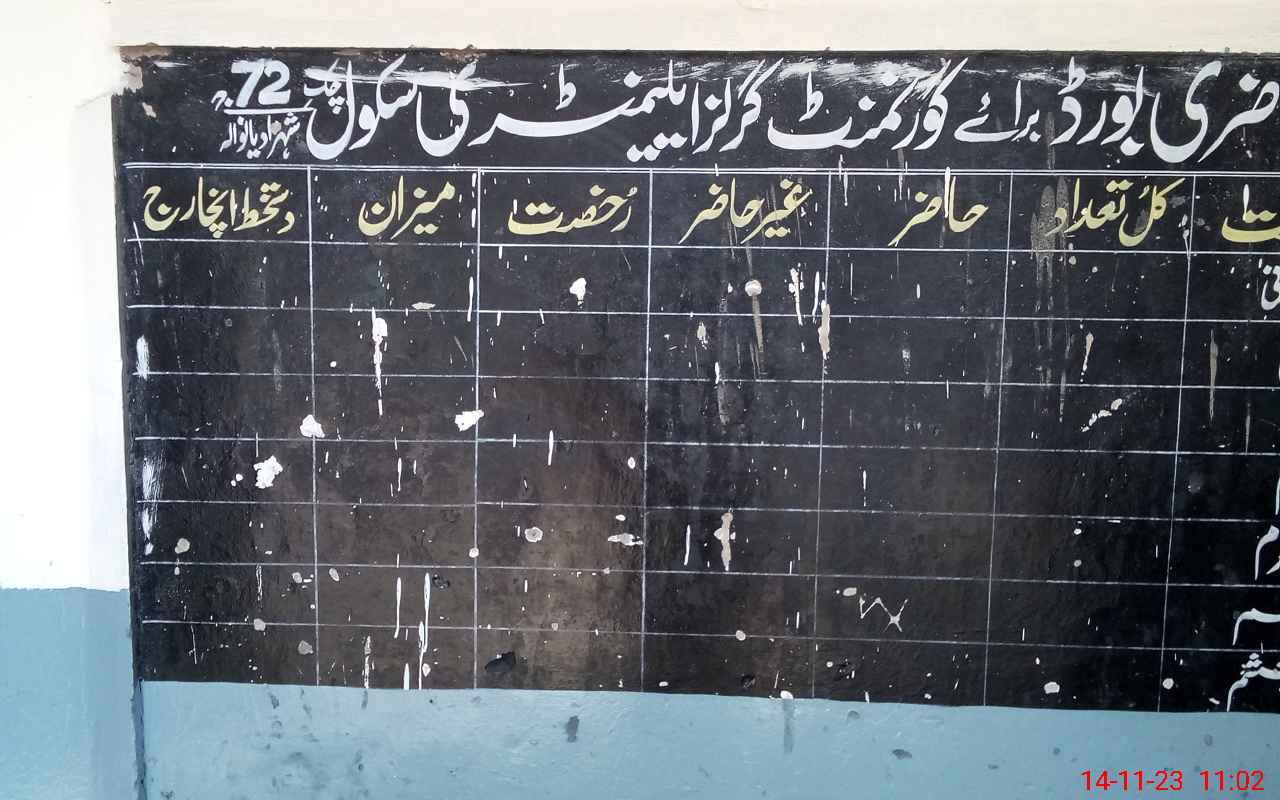 ضری بورڈ برائے گورنمنٹ گرلز ایلیمنٹری سکول چک 72
شہزادیانوالہ
کل تعداد حاضر غیر حاضر رُخصت میزان دستخط انچارج
14-11-23 11:02